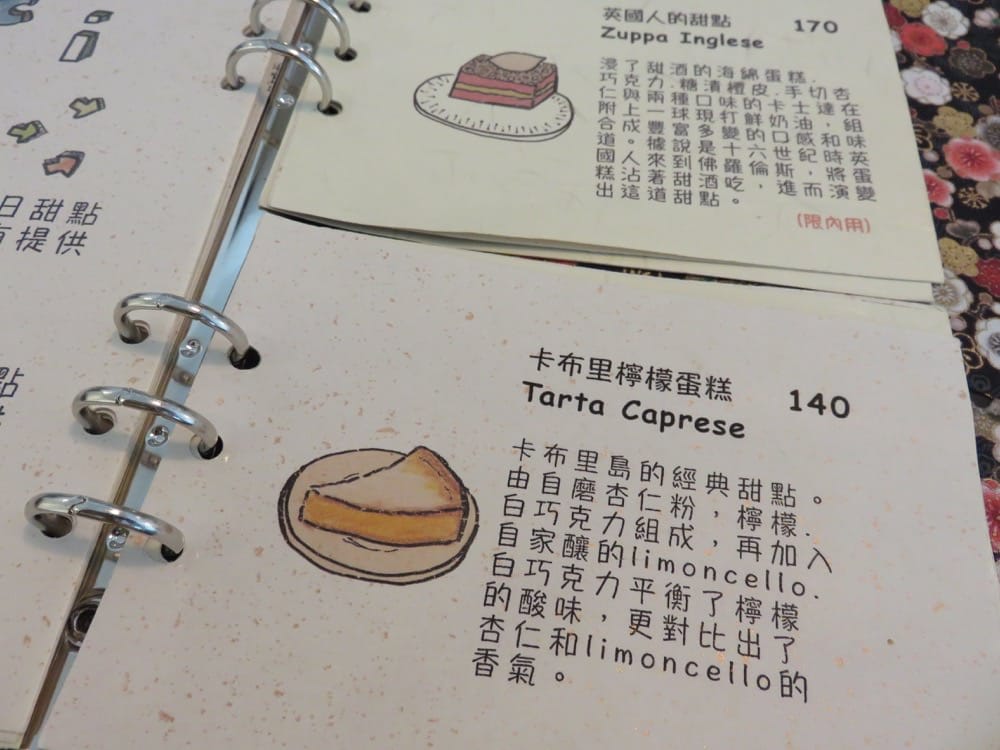 英國人的甜點 170
Zuppa Inglese
浸了甜酒的海綿蛋糕.
巧克力.糖漬橙皮.手切杏
仁與兩種口味的卡士達，在
附上一球現打鮮奶油，組
合成豐富多變的口感和味
道。據說是十六世紀時英
國人來到佛羅倫斯，將蛋
糕沾著甜酒吃，進而演變
出這道甜點。
(限內用)
日甜點
提供
點
卡布里檸檬蛋糕 140
Tarta Caprese
卡布里島的經典甜點。
由自磨杏仁粉，檸檬.
白巧克力組成，再加入
自家釀的limoncello.
白巧克力平衡了檸檬
的酸味，更對比出了
杏仁和limoncello的
香氣。